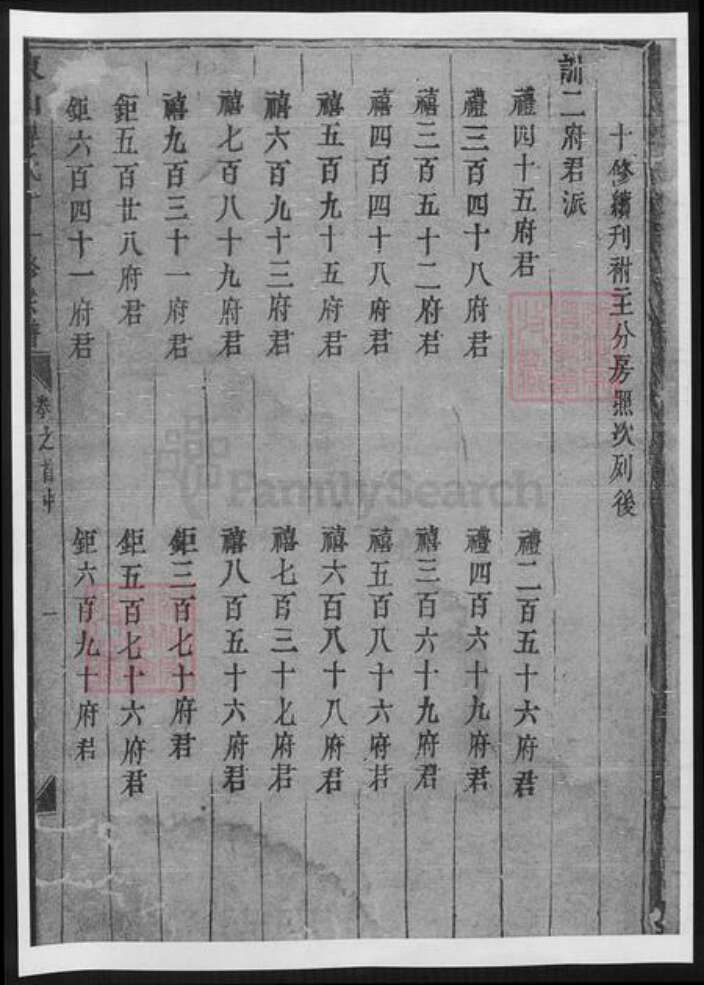 十修續刊祔主分房照次列後
訓二府君派
禮四十五府君
禮二百五十六府君
禮三百四十八府君
禮四百六十九府君
禧三百五十二府君
禧三百六十九府君
禧四百四十八府君
禧五百八十六府君
禧五百九十五府君
禧六百八十八府君
禧六百九十三府君
禧七百三十七府君
禧七百八十九府君
禧八百五十六府君
禧九百三十一府君
鉅三百七十府君
鉅五百廿八府君
鉅五百七十六府君
鉅六百四十一府君
鉅六百九十府君
氏十一修宗譜
卷之首
一
FamilySearch